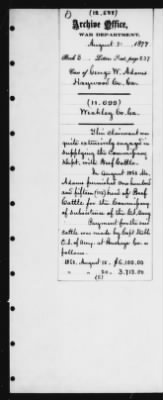 (12,692)
Archive Office,
WAR DEPARTMENT,
August 31 1877
Book 3 Letter Press, page 237
Case of George W. Adams
Haywood Co. Ga.
(11,692)
Weakley Co. Ga.
This claimant was
quite extensively engaged in
supplying the Commissary
Dept. with Beef Cattle.
In August 1863 Mr.
Adams furnished one hundred
and fifteen (115) head of Beef
Cattle for the Commissary
of Subsistence of the C.S. Army
Payment for the said
cattle was made by Capt
C.S. of Army, at Co. as
follows.
1863, August 15, $6,100.00
" " 20, 3,713.00